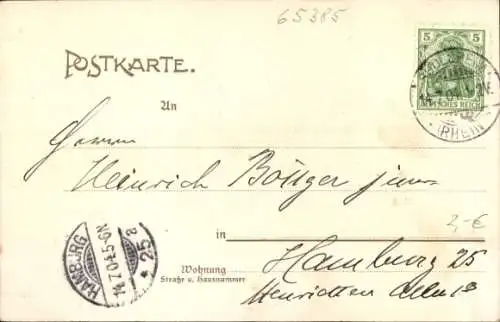 65385
5
DEUTSCHES REICH
14.7.04
(RHEIN)
POSTKARTE.
An
Herrn
Heinrich Böttger junr.
2,-€
in Hamburg 25
Wohnung
Straße u. Hausnummer
Henrietten Allee 13
HAMBURG
14.7.04.5-6N
* 25 a